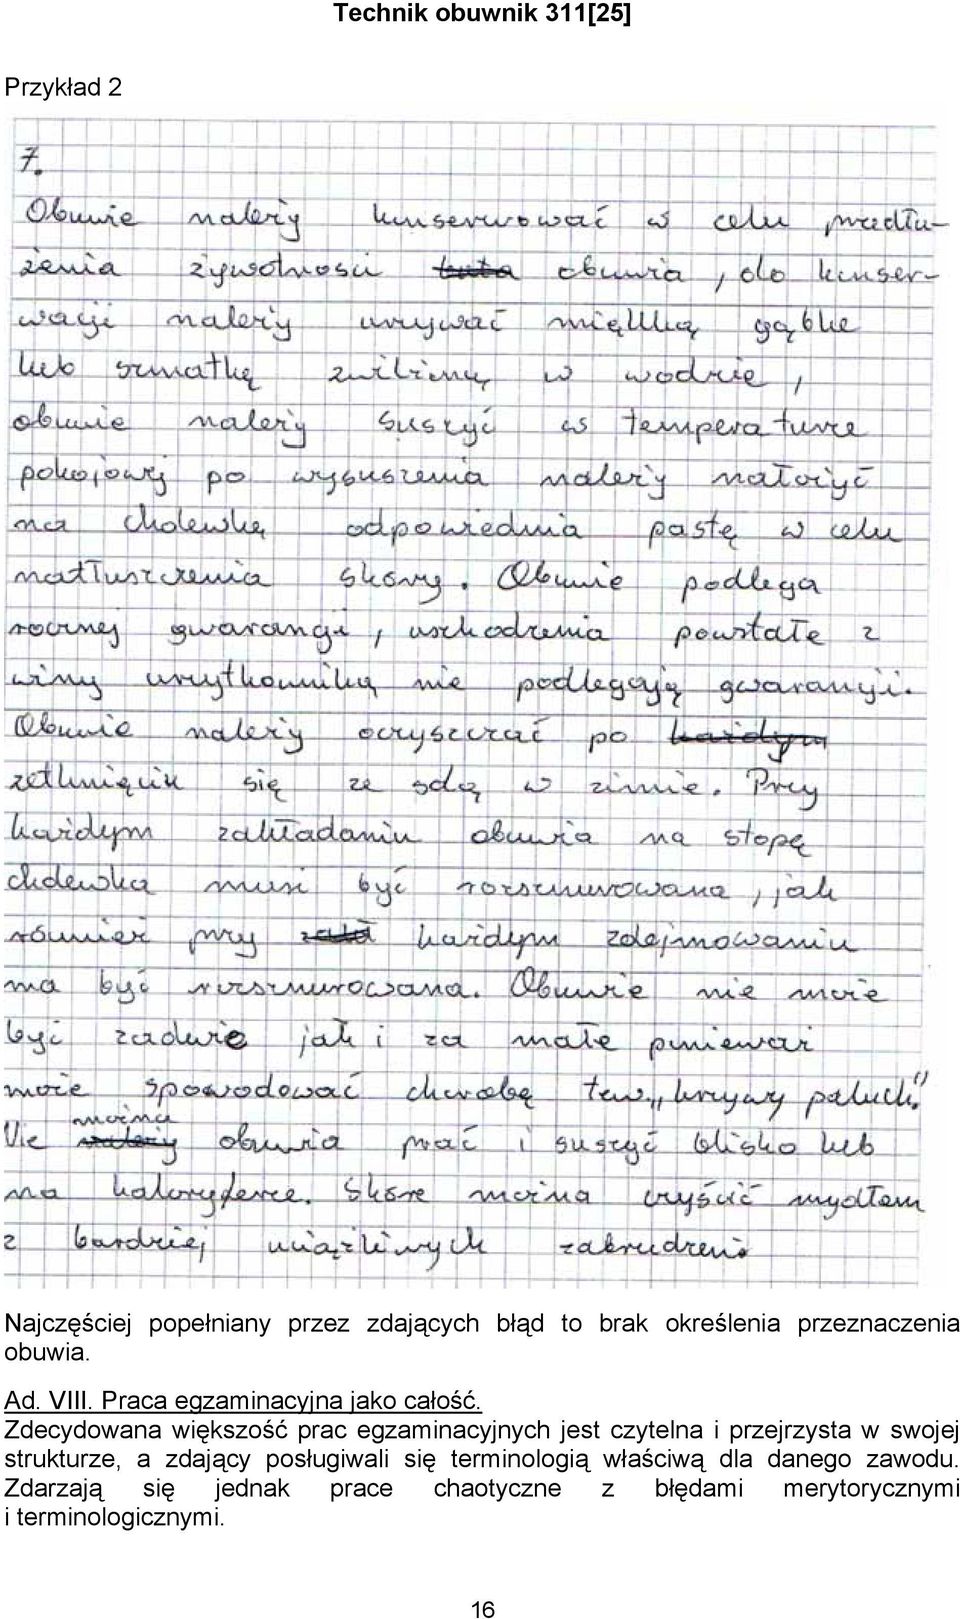 Technik obuwnik 311[25]
Przykład 2
7.
Obuwie należy konserwować w celu przedłu-
żenia żywotności buta obuwia, do konser-
wacji należy używać miękką gąbkę
lub szmatkę zwilżiną w wodzie,
obuwie należy suszyć w temperaturze
pokojowej po wysuszenia należy nałożyć
na cholewkę odpowiednia pastę w celu
natłuszczenia skóry. Obuwie podlega
rocznej gwarangi, uszkodzenia powstałe z
winy użytkownika nie podlegają gwarangi.
Obuwie należy oczyszczać po każdym
zetknięciu się ze solą w zimie. Przy
każdym zakładaniu obuwia na stopę
cholewka musi być rozsznurowana, jak
również przy zakł każdym zdejmowaniu
ma być rozsznurowana. Obuwie nie może
być zaduże jak i za małe ponieważ
może spowodować chorobę tzw „krzywy paluch."
Nie można należy obuwia prać i suszyć blisko lub
na kaloryferze. Skóre można czyścić mydłem
z bardziej uciążliwych zabrudzeń.
Najczęściej popełniany przez zdających błąd to brak określenia przeznaczenia
obuwia.
Ad. VIII. Praca egzaminacyjna jako całość.
Zdecydowana większość prac egzaminacyjnych jest czytelna i przejrzysta w swojej
strukturze, a zdający posługiwali się terminologią właściwą dla danego zawodu.
Zdarzają się jednak prace chaotyczne z błędami merytorycznymi
i terminologicznymi.
16